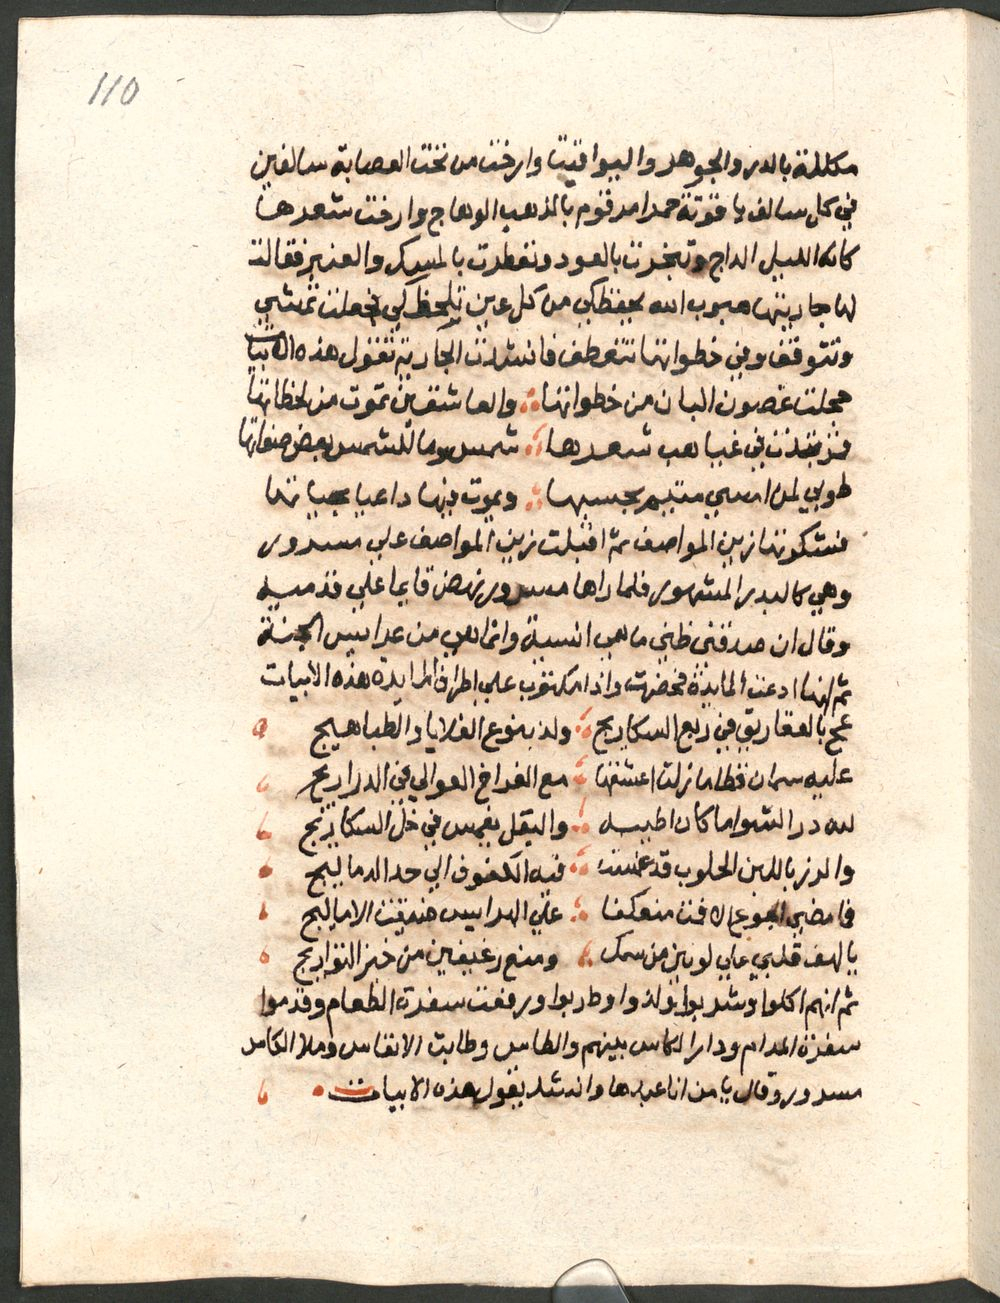 110
مكللة بالدر والجوهر واليواقيت وارخت من تحت العصابة سالفين
في كل سالف ياقوتة حمرا مرقوم بالذهب الوهاج وارخت شعرها
كانه الليل الداج وتبخرت بالعود وتعطرت بالمسك والعنبر فقالت
لها جاريتها هبوب الله يحفظكي من كل عين تلحظكي فجعلت تمشي
وتتوقف وفي خطواتها تتعطف فانشدت الجارية تقول هذه الابيات
خجلت غصون البان من خطواتها والعاشقين تموت من لحظاتها
في غياهب شعرها شمس وما للشمس بعض صفاتها
طوبي لمن امسي متيم بحسنها ويموت فيها داعيا بحياتها
فشكرتها زين المواصف ثم اقبلت زين المواصف علي مسرور
وهي كالبدر المشهور فلما راها مسرور نهض قايما علي قدميه
وقال ان صدقني ظني ما هي انسية وانما هي من عرايس الجنة
ثم انها ادعت المايدة فحضرت واذا مكتوب علي اطراف المايدة هذه الابيات
عج بالعقاريق في ربع السكاريج ولذ بنوع القلايا والطباهيج
عليه سمان قطا ما زلت اعشقها مع الفراخ الغوالي في الدراريج
لله در الشوا ما كان اطيبه والبقل يغمس في خل السكاريج
والرز باللبن الحلوب قد غمست فيه الكفوف الي حد الدماليج
فامضي الجوع الا قت منعكفا علي الهرايس ضيقت الاماليج
يا لهف قلبي علي لونين من سمك ومنع رغيفين من خبز التواريج
ثم انهم اكلوا وشربوا ولذوا وطربوا ورفعت سفرة الطعام وقدموا
سفرة المدام ودار الكاس بينهم والطاس وطابت الانفاس وملا الكاس
مسرور وقال يا من انا عبدها وانشد يقول هذه الابيات